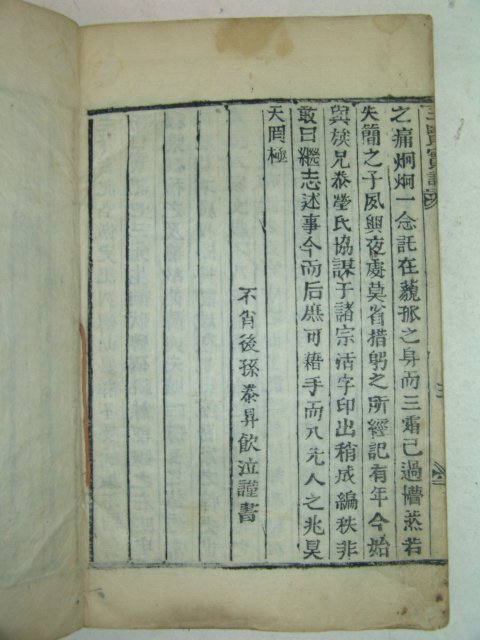 三賢實記
之痛炯炯一念託在藐孤之身而三霜已過懵焉若
失簡之子夙興夜處莫省措躬之所經記有年今始
與族兄泰瑩氏協謀于諸宗活字印出稍成編秩非
敢曰繼志述事今而后庶可藉手而入先人之兆昊
天罔極
不肖後孫泰昇飮泣謹書